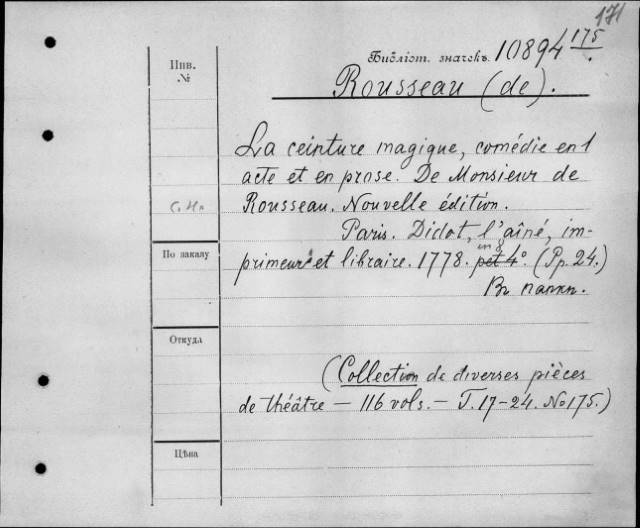 171
Инв.
№
Библіот. значекъ. 10894 175
Rousseau (de).
La ceinture magique, comédie en 1
acte et en prose. De Monsieur de
Rousseau. Nouvelle édition.
Paris. Didot, l'aîné, im-
По заказу
primeur et libraire. 1778. in 8 pet 4°. (Pp. 24.)
Въ папкѣ.
Откуда
(Collection de diverses pièces
de théâtre — 116 vols. — T. 17-24. No 175.)
Цѣна